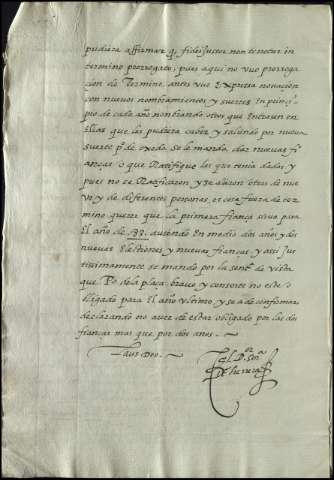 pudiera affirmar q̃ fideiussor non tenetur in
termino prorrogato; pues aqui no vuo prorroga
cion de Termino, antes vuo Expressa nouacion
con nueuos nombramientos y suertes En princi
pio de cada año nombrando otros que Entrasen En
ellas que les pudiera caber y saliendo por nueua
suerte P.º de oxeda se le mando, dar nueuas fi
anças o que Ratifique las que tenia dadas, y
pues no se Ratificaron, y se dieron otras de nue
uo, y de diferentes personas, es cosa fuera de ter
mino querer que la primera fiança sirua para
El año de 88, auiendo En medio dos años y dos
nuevas Electiones y nueuas fianças, y assi Jus
tissimamente se mando por la sent.ª de vista
que P.º de la plaça, brauo, y consortes no estẽ o
bligados para El año vltimo, y se a de confirmar
declarando no auer de estar obligado por las dos
fianças mas que por dos años.
Laus Deo.
El D.ºr